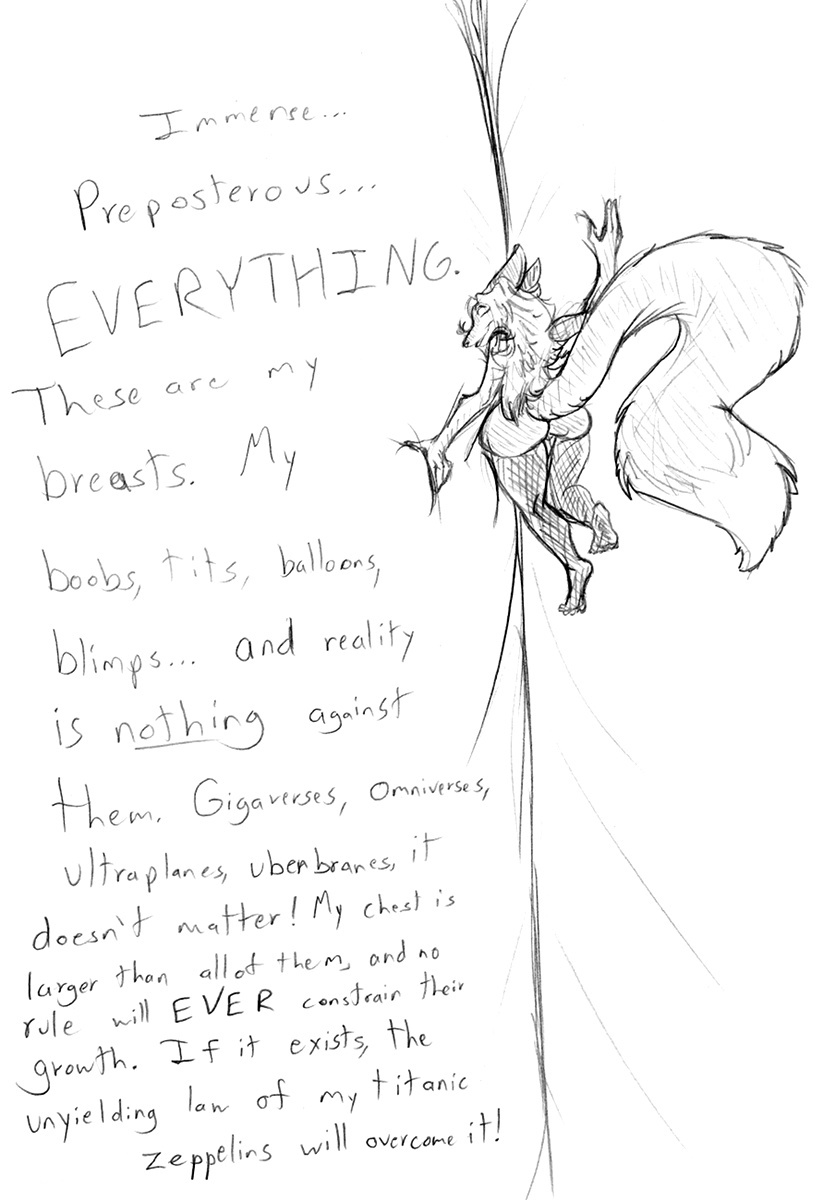 Immense...
Preposterous...
EVERYTHING.
These are my
breasts. My
boobs, tits, balloons,
blimps... and reality
is nothing against
them. Gigaverses, Omniverses,
ultraplanes, uberbranes, it
doesn't matter! My chest is
larger than all of them, and no
rule will EVER constrain their
growth. If it exists, the
unyielding law of my titanic
zeppelins will overcome it!